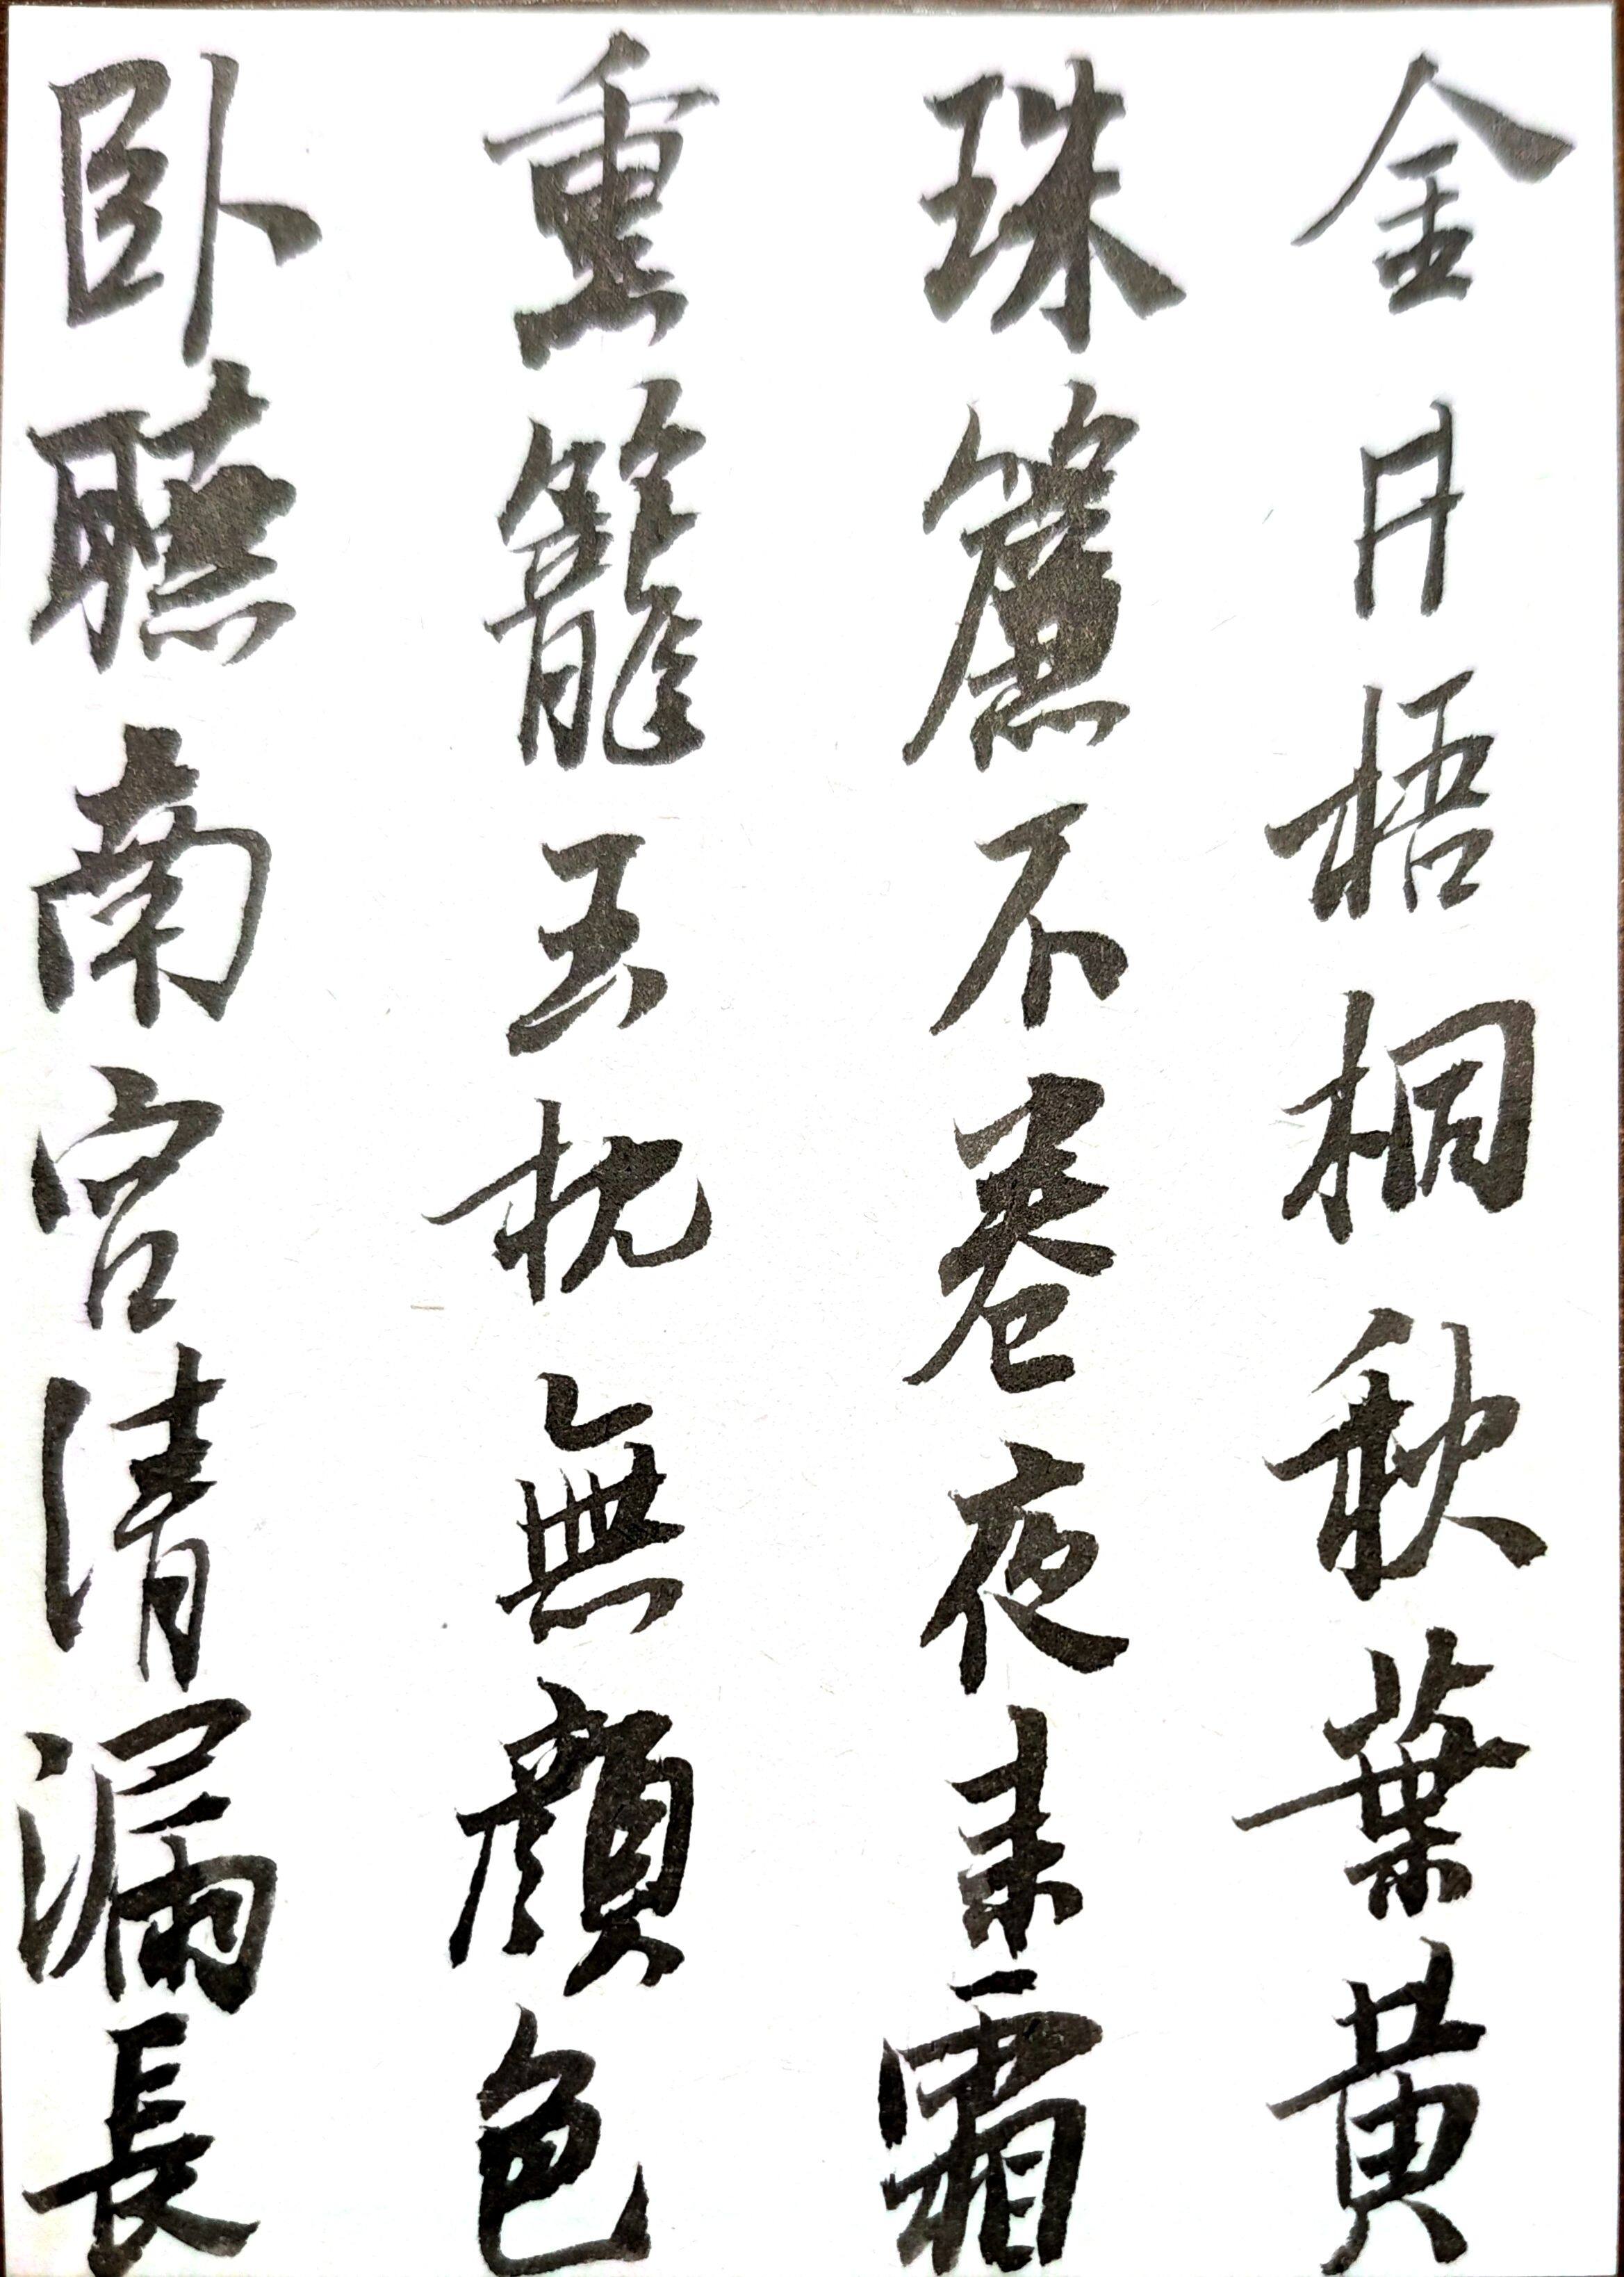 金井梧桐秋葉黄
珠簾不卷夜来霜
重籠玉枕無顔色
卧聴南宮清漏長